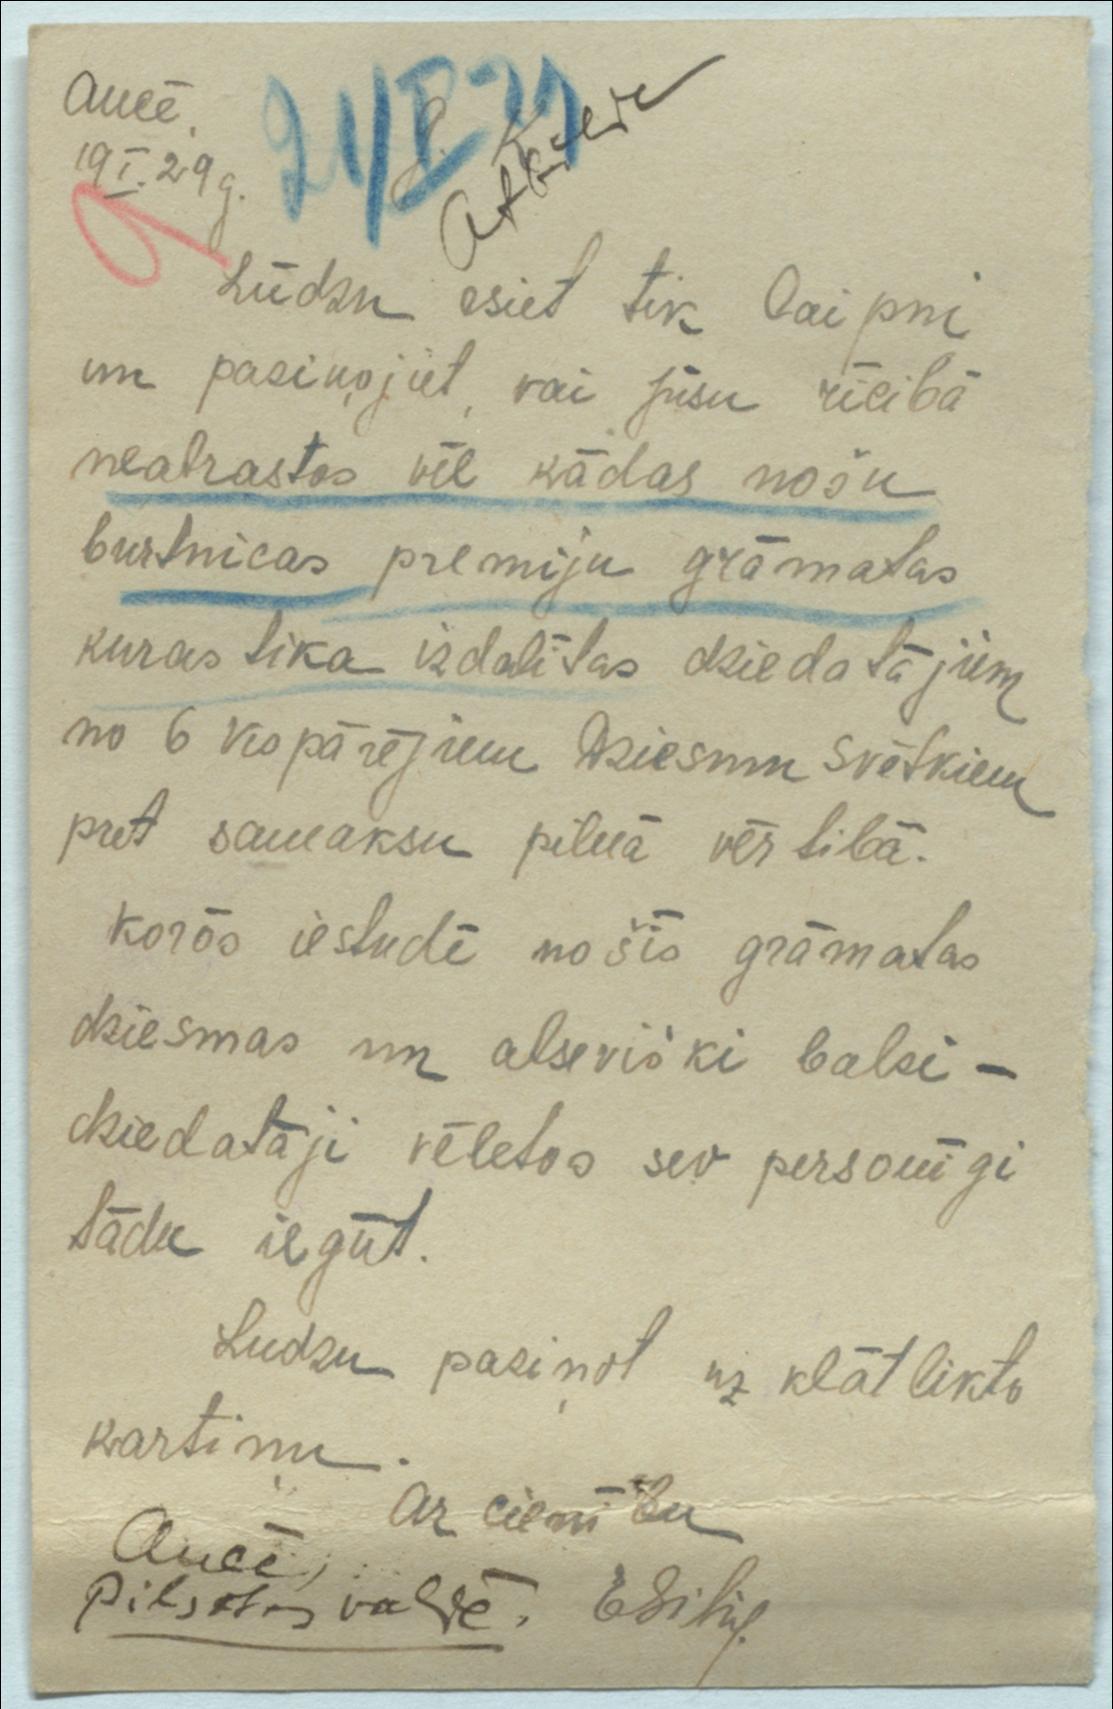 Aucē,
19 I. 29 g.
Lūdzu esiet tik laipni
un pasiņojiet, vai jūsu rīcībā
neatrastos vēl kādas nošu
burtnicas premiju grāmatas
kuras tika izdalītas dziedatājiem
no 6 Vispārējiem Dziesmu Svētkiem
pret samaksu pilnā vērtibā.
Koros iestudē no šīs grāmatas
dziesmas un atseviški balsi –
dziedatāji vēletos sev personīgi
tādu iegūt.
Ludzu pasiņot uz klāt likto
kartiņu.
Ar cienību
Aucē,
pilsētas valdē.